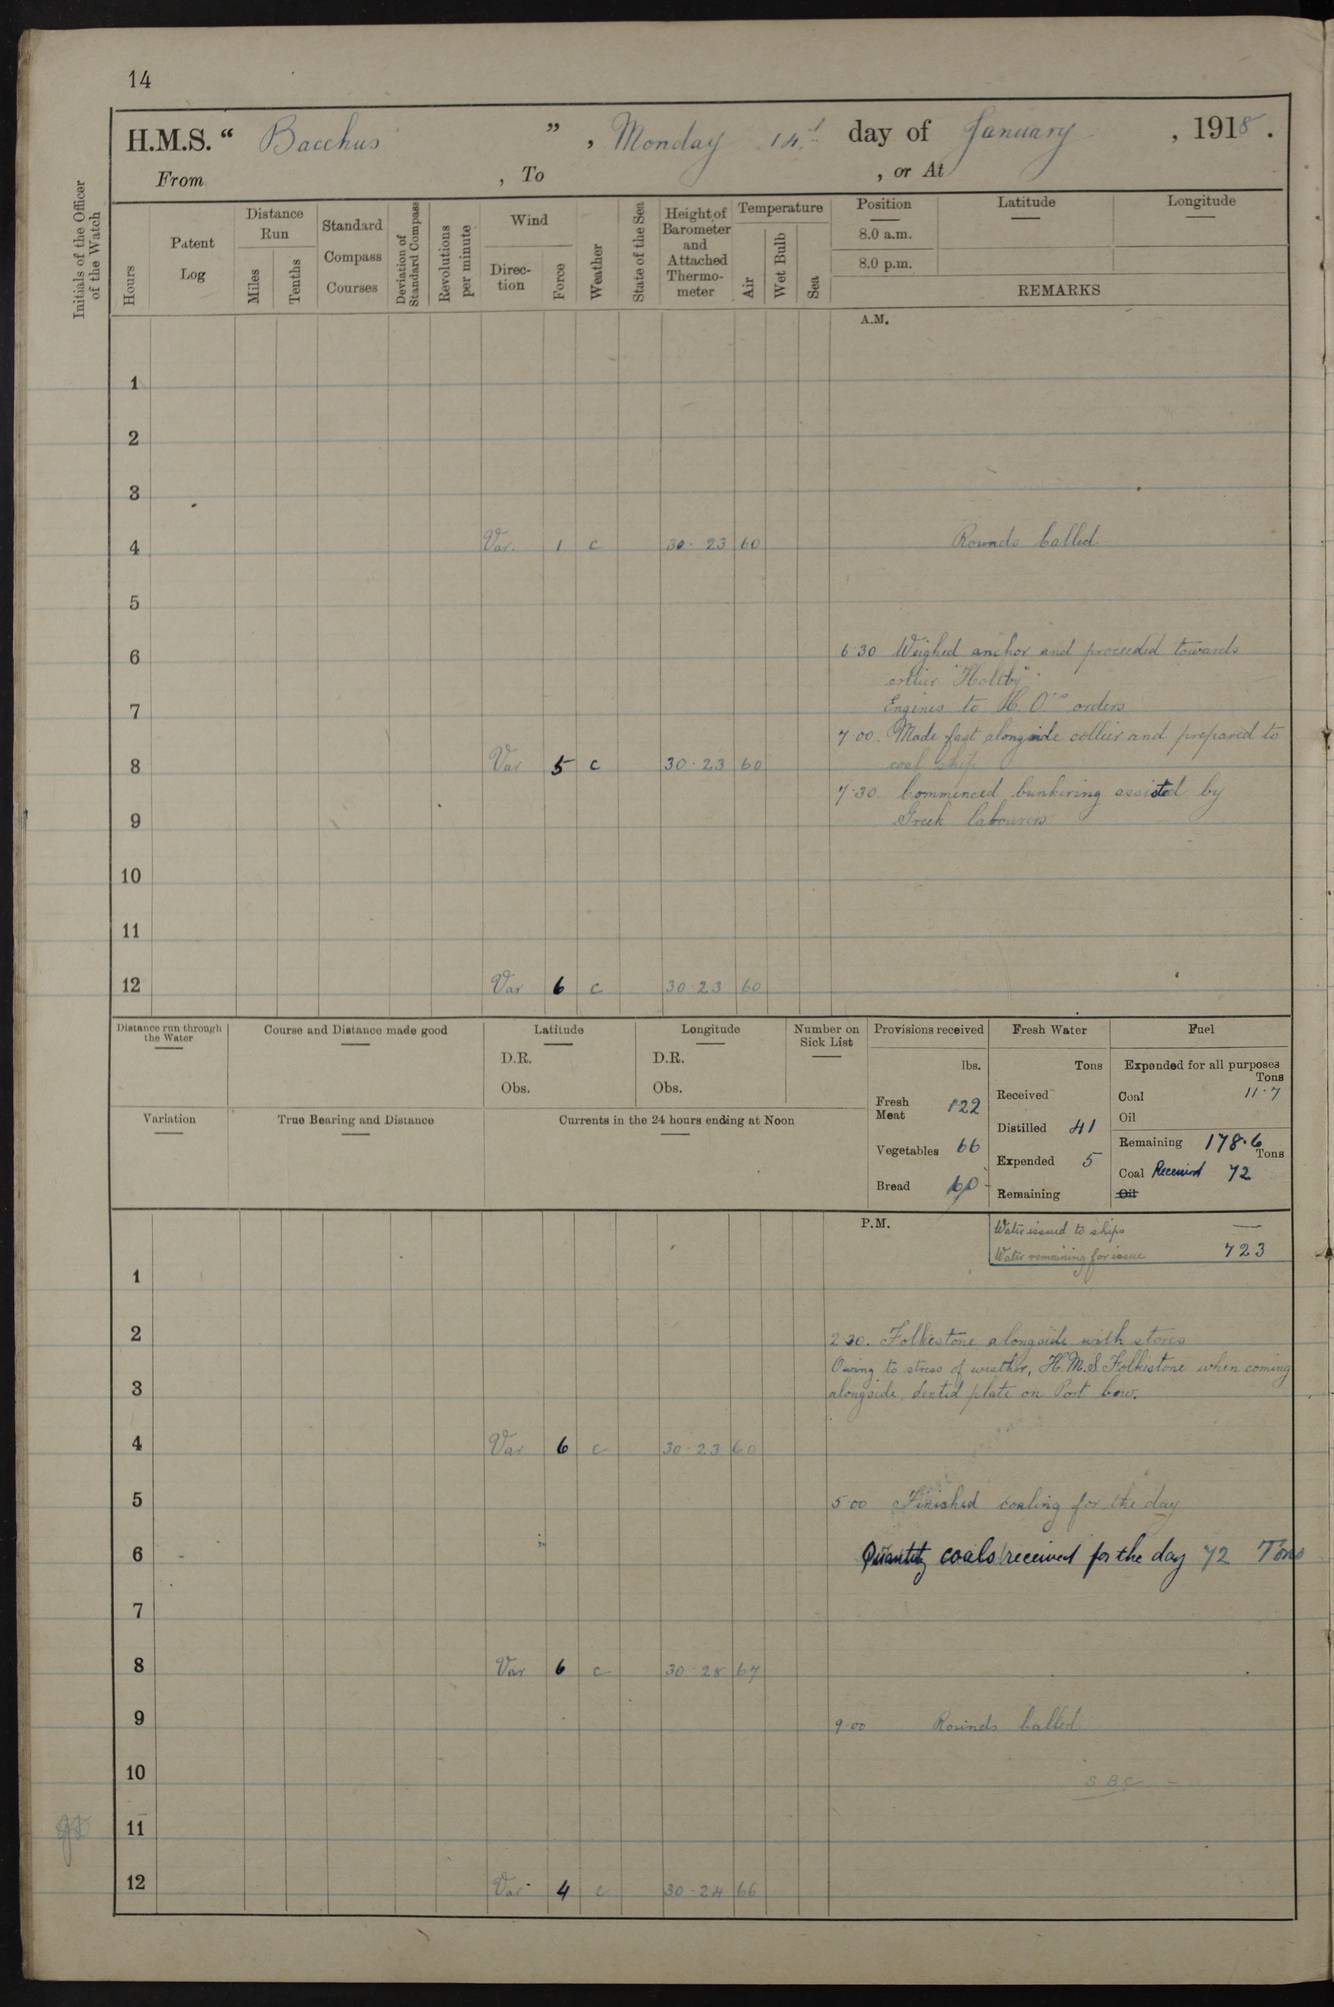 14
H.M.S. “ Bacchus ” , Monday 14th day of January , 1918 .
From , To , or At
Initials of the Officer of the Watch
Hours
Patent Log
Distance Run
Miles
Tenths
Standard Compass Courses
Deviation of Standard Compass
Revolutions per minute
Wind
Direc- tion
Force
Weather
State of the Sea
Height of Barometer and Attached Thermo- meter
Temperature
Air
Wet Bulb
Sea
Position
8.0 a.m.
8.0 p.m.
Latitude
Longitude
REMARKS
A.M.
1
2
3
4 Var. 1 c 30·23 60 Rounds Called.
5
6 6·30 Weighed anchor and proceeded towards
collier "Holtby".
7 Engines to H. O's orders
7·00. Made fast alongside collier and prepared to
8 Var 5 c 30·23 60 coal ship
7·30. Commenced bunkering assisted by
9 Greek labourers
10
11
12 Var 6 c 30·23 60
Distance run through the Water
Course and Distance made good
Latitude
D.R.
Obs.
Longitude
D.R.
Obs.
Number on Sick List
Variation
True Bearing and Distance
Currents in the 24 hours ending at Noon
Provisions received
lbs.
Fresh Meat 122
Vegetables 66
Bread 60
Fresh Water
Tons
Received
Distilled 41
Expended 5
Remaining
Fuel
Expended for all purposes
Tons
Coal 11·7
Oil
Remaining 178·6 Tons
Coal Received 72
Oil
P.M.
Water issued to ships —
Water remaining for issue 723
1
2 2·30. Folkestone alongside with stores
Owing to stress of weather, H.M.S Folkestone when coming
3 alongside, dented plate on Port bow.
4 Var 6 c 30·23 60
5 5·00 Finished coaling for the day
6 Quantity coals received for the day 72 Tons
7
8 Var 6 c 30·28 67
9 9·00 Rounds Called
10 S B C
11
12 Var 4 c 30·24 66